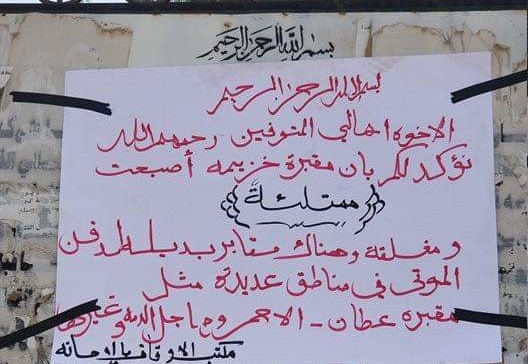 بسم الله الرحمن الرحيم
بسم الله الرحمن الرحيم
الاخوه اهالي المتوفين رحمهم الله
نؤكد لكم بان مقبرة خزيمه أصبحت
(ممتلئة)
ومغلقة وهناك مقابر بديله لدفن
الموتى في مناطق عديدة مثل
مقبرة عطان - الاحمر وماجل الدمه وغيرها
مكتب الاوقاف بالامانه